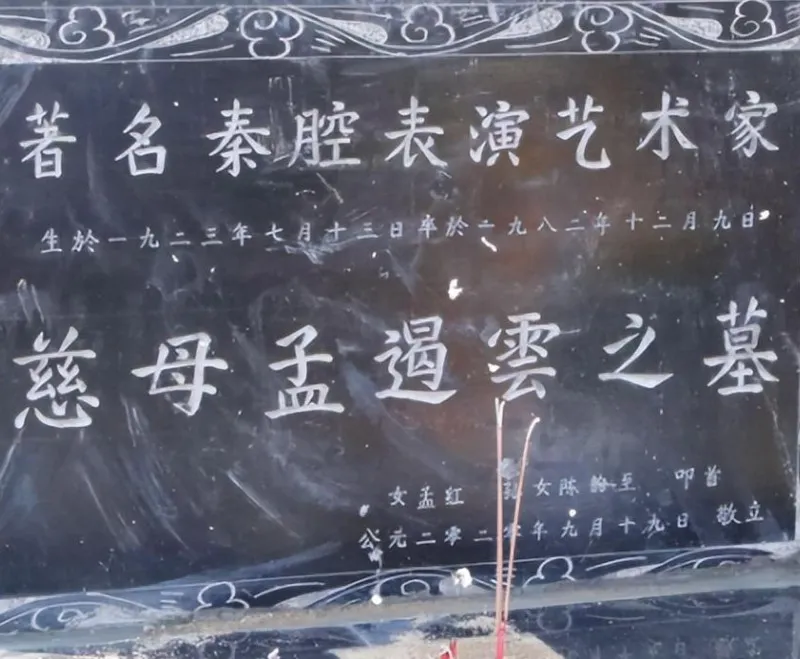 著名秦腔表演艺术家
生於一九二三年七月十三日卒於一九八二年十二月九日
慈母孟遏雲之墓
女孟红 女陈 至 叩首
公元二零二零年九月十九日 敬立